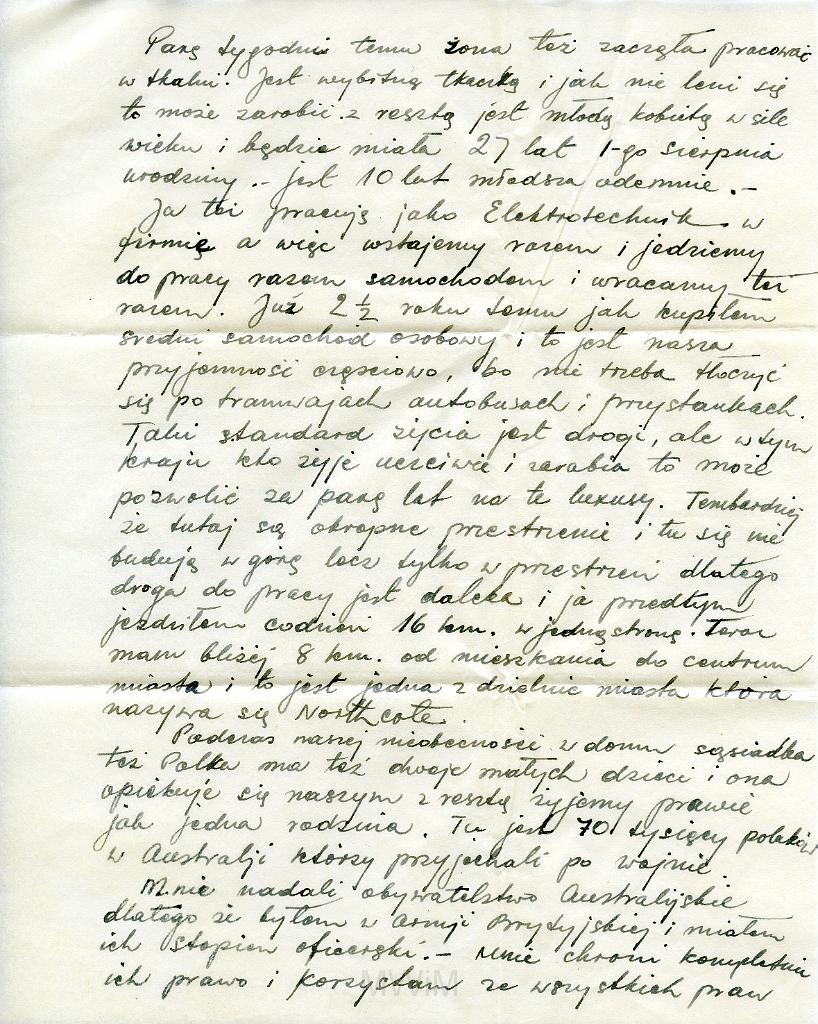 Parę tygodni temu żona też zaczęła pracować
w tkalni. Jest wybitną tkaczką i jak nie leni się
to może zarobić z resztą jest młodą kobietą w sile
wieku i będzie miała 27 lat 1-go sierpnia
urodziny. - jest 10 lat młodsza odemnie. -
Ja też pracuję jako Elektrotechnik w
firmie a więc wstajemy razem i jedziemy
do pracy razem samochodem i wracamy też
razem. Już 2 ½ roku temu jak kupiłem
średni samochód osobowy i to jest nasza
przyjemność częściowo, bo nie trzeba tłoczyć
się po tramwajach autobusach i przystankach.
Taki standard życia jest drogi, ale w tym
kraju kto żyje uczciwie i zarabia to może
pozwolić za parę lat na te luxusy. Tembardziej
że tutaj są okropne przestrzenie i tu się nie
budują w górę lecz tylko w przestrzeń dlatego
droga do pracy jest daleka i ja przedtym
jezdziłem codzień 16 km. w jedną stronę. Teraz
mam bliżej 8 km. od mieszkania do centrum
miasta i to jest jedna z dzielnic miasta która
nazywa się Northcote.
Podczas naszej nieobecności w domu sąsiadka
też Polka ma też dwoje małych dzieci i ona
opiekuje się naszym z resztą żyjemy prawie
jak jedna rodzina. Tu jest 70 tysięcy polaków
w Australji którzy przyjechali po wojnie.
Mnie nadali obywatelstwo Australijskie
dlatego że byłem w Armji Brytyjskiej i miałem
ich stopień oficerski. - Mnie chroni kompletnie
ich prawo i korzystam ze wszystkich praw
MWiM